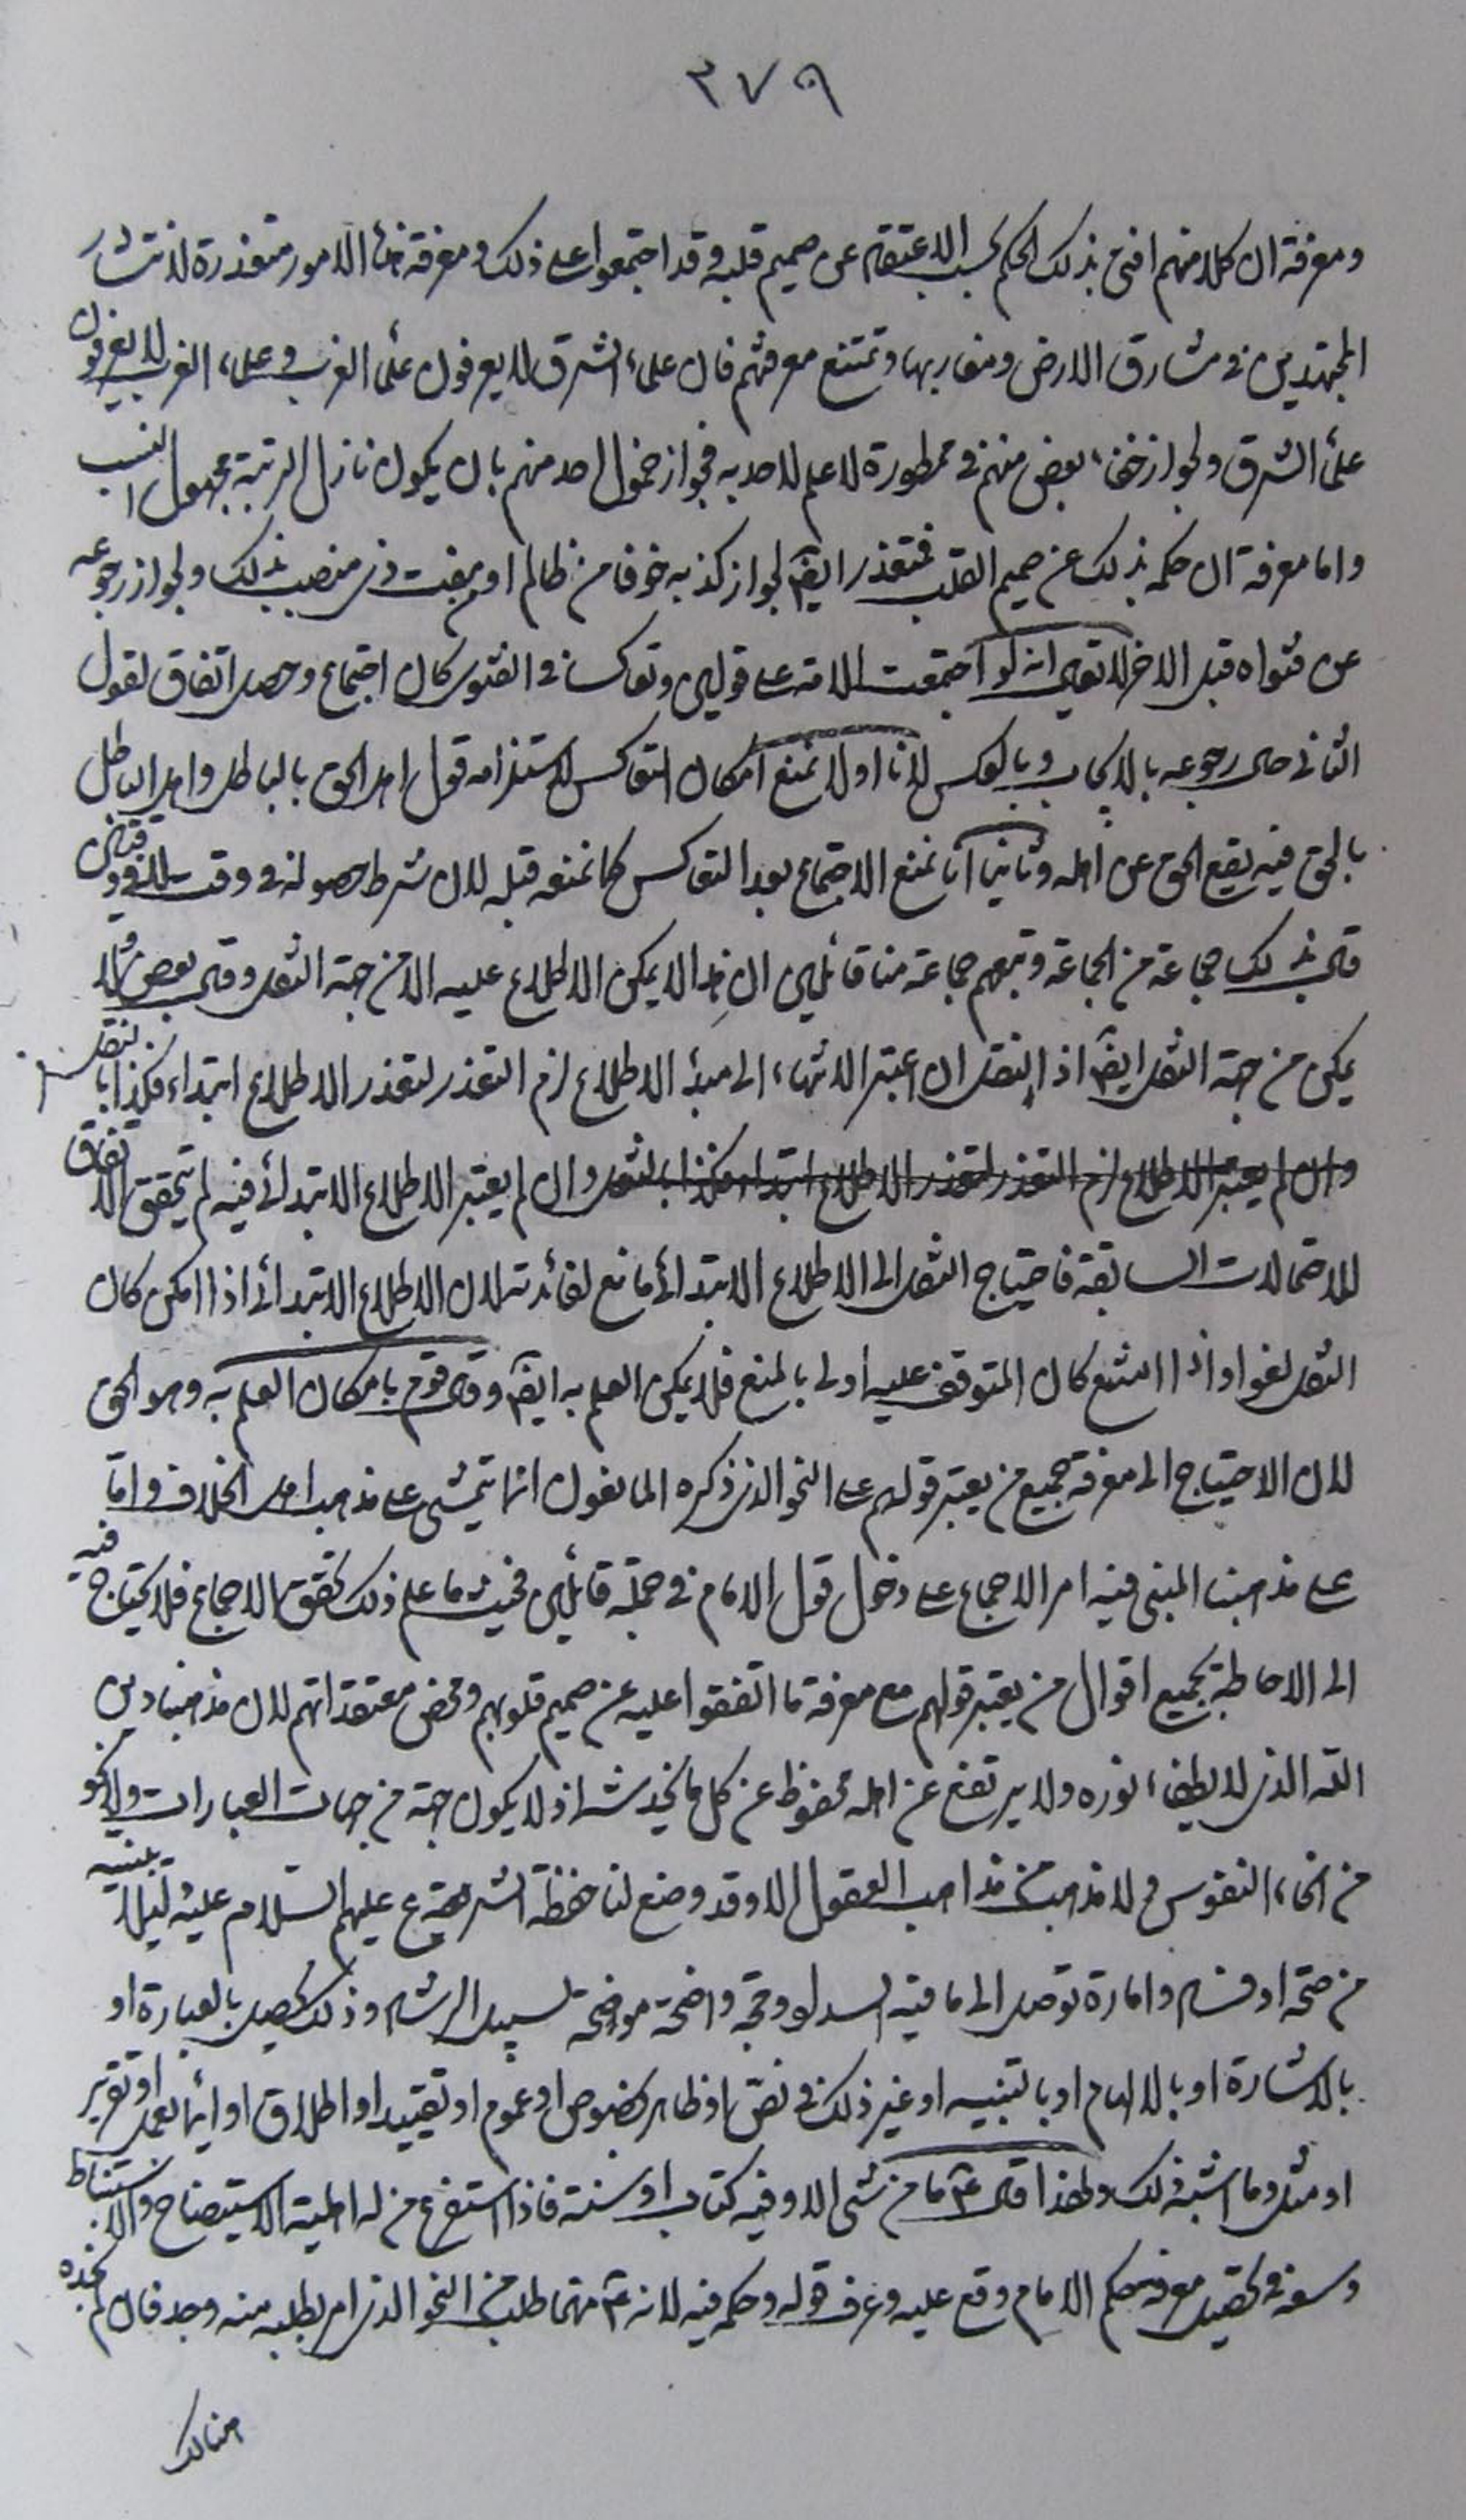 ٣٧٩
ومعرفة ان كلا منهم افتى بذلك الحكم بحسب الاعتقاد عن صميم قلبه وقد اجتمعوا على ذلك ومعرفة هذه الامور متعذرة لانتشار
المجتهدين فى مشارق الارض ومغاربها وتمتنع معرفتهم فان علماء الشرق لا يعرفون علماء الغرب وعلماء الغرب لا يعرفون
علماء الشرق ولجواز خفاء بعض منهم فى مطمورة لا علم لاحد به فجواز خمول احد منهم بان يكون نازل الرتبة مجهول النسب
واما معرفة ان حكمه بذلك عن صميم القلب فمتعذر ايضا لجواز كذبه خوفا من ظالم او بمفت ذى منصب بذلك ولجواز رجوعه
عن فتواه قبل الاخر لا تقول انه لو اجتمعت الامة على قولين وتعاكسا فى الفتوى كان اجتماع وحصل اتفاق لقول
الثانى حال رجوعه بالايجاب وبالعكس لانا اولا نمنع امكان التعاكس لاستلزامه قول اهل الحق بالباطل واهل الباطل
بالحق فيه يقع الحق عن اهله وثانيا انا نمنع الاجتماع بعد التعاكس كما نمنعه قبله لان شرط حصوله فى وقت لا فى وقتين
قال بذلك جماعة من الجماعة وتبعهم جماعة منا قائلين ان هذا لا يمكن الاطلاع عليه الا من جهة النقل وقال بعض ولا
يمكن من جهة النقل ايضا اذ النقل ان اعتبر الانتهاء الى مبدأ الاطلاع لزم التعذر لتعذر الاطلاع ابتداء فكذا بالنقل
وان لم يعتبر الاطلاع لزم التعذر لتعذر الاطلاع ابتداء فكذا بالنقل وان لم يعتبر الاطلاع الابتدائى فيه لم يتحقق الاتفاق
للاحتمالات السابقة فاحتياج النقل الى الاطلاع الابتدائى مانع لفائدته لان الاطلاع الابتدائى اذا امكن كان
النقل لغوا واذا امتنع كان المتوقف عليه اولى بالمنع فلا يمكن العلم به ايضا وقال قوم بامكان العلم به وهو الحق
لان الاحتياج الى معرفة جميع من يعتبر قولهم على النحو الذى ذكره المانعون انما يتمشى على مذهب اهل الخلاف واما
على مذهبنا المبنى فيه امر الاجماع على دخول قول الامام فى جملة قائلين فحيث ما علم ذلك تحقق الاجماع فلا يحتاج فيه
الى الاحاطة بجميع اقوال من يعتبر قولهم مع معرفة ما اتفقوا عليه عن صميم قلوبهم ومحض معتقداتهم لان مذهبنا دين
الله الذى لا يطفاء نوره ولا يرتفع عن اهله محفوظ عن كل ما يخدشه اذ لا يكون جهة من جهات العبارات ولا نحو
من انحاء النفوس ولا مذهب من مذاهب العقول الا وقد وضع لنا حفظة الشريعة ع عليهم السلام عليه دليلا بنبيه
من صحة او فساد وامارة توصل الى ما فيه السداد وحجة واضحة موضحة لسبيل الرشاد وذلك يحصل بالعبارة او
بالاشارة او بالالهام او بالتنبيه او غير ذلك فى نص او ظاهر بخصوص او عموم او تقييد او اطلاق او ايماء لعمل او تقرير
او مثل وما اشبه ذلك ولهذا قال ع ما من شئ الا وفيه كتاب او سنة فاذا استفرغ من له اهلية الاستيضاح والاستنباط
وسعه فى تحصيل معرفة حكم الامام وقع عليه وعرف قوله وحكمه فيه لانه ع مهما طلب من النحو الذى امر بطلبه منه وجد فان لم تجده
هنالك